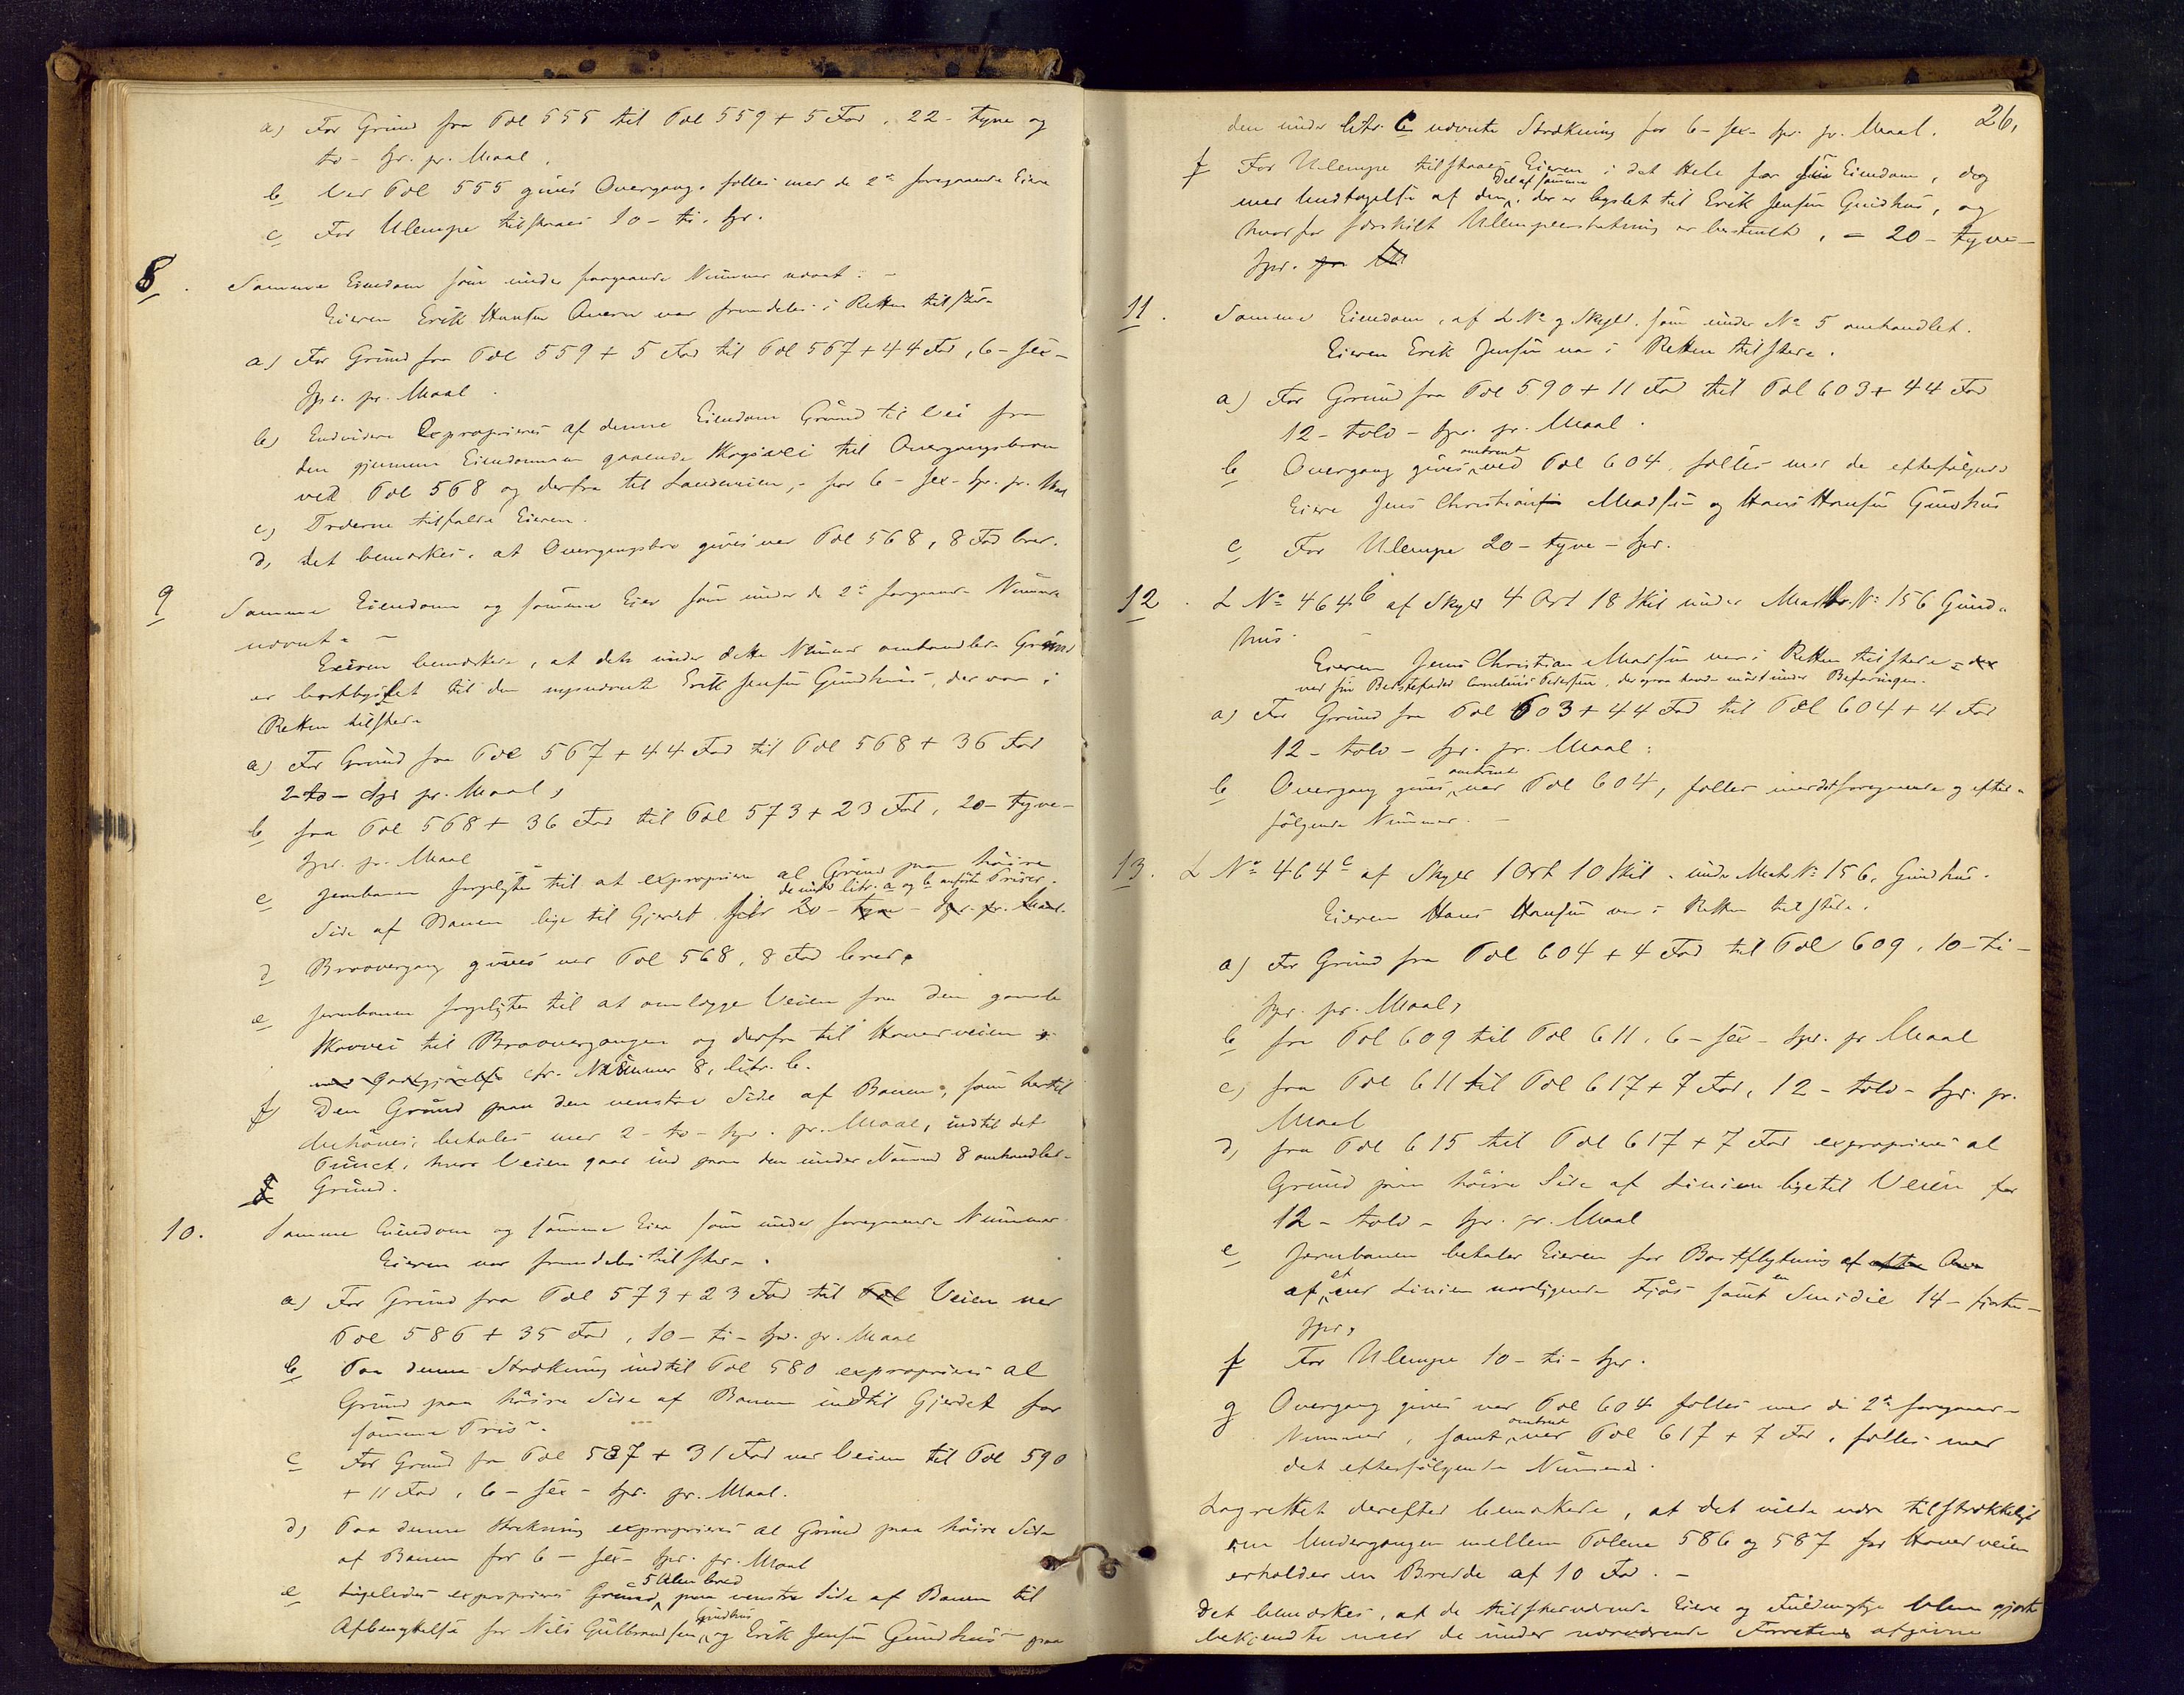 a) For Grund fra Pæl 555 til Pæl 559 + 5 Fod, 22 - tyve og
to - Spr. pr. Maal.
b Ved Pæl 555 gives Overgang, fælles med de 2de foregaaende Eiere
c For Ulempe tilstaaes 10 - ti, Spr.
8. Samme Eiendom som under foregaaende Nummer nævnt. -
Eieren Erik Hansen Qvern var fremdeles i Retten tilstede
a) For Grund fra Pæl 559 + 5 Fod til Pæl 567 + 44 Fod, 6 - sex -
Spr. pr. Maal.
b) Endvidere Exproprieres af denne Eiendom Grund til Vei fra
den gjennem Eiendommen gaaende Skogsvei til Overgangsbroen
ved Pæl 568 og derfra til Landeveien, - for 6 - sex - Spr. pr. Maal
c) Træerne tilfalde Eieren.
d, Det bemærkes, at Overgangsbro gives ved Pæl 568, 8 Fod bred.
9 Samme Eiendom og samme Eier som under de 2de foregaaende Numere
nævnt. -
Eieren bemærkede, at det under dette Numer omhandlede Grund
er bortbygslet til den nysnævnte Erik Jensen Gundhus, der var i
Retten tilstede
a) For Grund fra Pæl 567 + 44 Fod til Pæl 568 + 36 Fod
2 - to - Spr pr. Maal,
b fra Pæl 568 + 36 Fod til Pæl 573 + 23 Fod, 20 - tyve -
Spr. pr. Maal
c Jernbanen forpligtes til at expropriere al Grund paa høire
de under litr. a og b anførte Priser.
Side af Banen lige til Gjerdet for 20 - tyve - Spr. pr. Maal.
d Broovergang gives ved Pæl 568, 8 Fod bred.
e Jernbanen forpligtes til at omlægge Veien fra den gamle
Skovvei til Broovergangen og derfra til Hovedveien
cfr. Nummer 8, litr. b.
f) Den Grund paa den venstre Side af Banen, som hertil
behøves, betales med 2 - to - Spr. pr. Maal, indtil det
Punct, hvor Veien gaar ind paa den under Numer 8 omhandlede
Grund.
10. Samme Eiendom og samme Eier som under foregaaende Nummer
Eieren var fremdeles tilstede.
a) For Grund fra Pæl 573 + 23 Fod til Pæl Veien ved
Pæl 586 + 35 Fod, 10 - ti - Spr. pr. Maal
b Paa denne Strækning indtil Pæl 580 exproprieres al
Grund paa høire Side af Banen indtil Gjerdet for
samme Pris.
c For Grund fra Pæl 587 + 31 Fod ved Veien til Pæl 590
+ 11 Fod, 6 - sex - Spr. pr. Maal.
d) Paa denne Strækning exproprieres al Grund paa høire Side
af Banen for 6 - sex - Spr. pr. Maal
5 Alen bred
e Ligeledes exproprieres Grund paa venstre Side af Banen til
Gundhus
Afbenyttelse for Nils Gulbrandsen og Erik Jensen Gundhus paa
26,
den under litr. c nævnte Strækning for 6 - sex - Spr. pr. Maal.
f For Ulempe tilstaaes Eieren i det Hele for sin Eiendom, dog
Del af samme
med Undtagelse af den, der er bygslet til Erik Jensen Gundhus, og
hvorfor særskilt Ulempeerstatning er bestemt, = 20 - tyve -
Spr. pr. M
11. Samme Eiendom, af L No og Skyld, som under No 5 omhandlet.
Eieren Erik Jensen var i Retten tilstede.
a) For Grund fra Pæl 590 + 11 Fod til Pæl 603 + 44 Fod
12 - tolv - Spr. pr. Maal.
omtrent
b Overgang gives ved Pæl 604, fælles med de efterfølgende
Eiere Jens Christian Madsen og Hans Hansen Gundhus
c For Ulempe 20 - tyve - Spr.
12. L No 464b af Skyld 4 Ort 18 Skil under Matr. No 156 Gund-
hus.
Eieren Jens Christian Madsen var i Retten tilstede
ved sin Bedstefader Cornelius Pedersen, der ogsaa havde mødt under Befaringen.
a) For Grund fra Pæl 603 + 44 Fod til Pæl 604 + 4 Fod
12 - tolv - Spr. pr. Maal:
omtrent
b Overgang gives ved Pæl 604, fælles med det foregaaende og efter-
følgende Nummer. -
13. L No 464c af Skyld 1 Ort 10 Skil. under Matr No 156, Gundhus.
Eieren Hans Hansen var i Retten tilstede.
a) For Grund fra Pæl 604 + 4 Fod til Pæl 609, 10 - ti -
Spr. pr. Maal,
b fra Pæl 609 til Pæl 611, 6 - sex - Spr. pr Maal
c) fra Pæl 611 til Pæl 617 + 7 Fod, 12 - tolv - Spr. pr.
Maal
d, fra Pæl 615 til Pæl 617 + 7 Fod exproprieres al
Grund paa høire Side af Linien lige til Veien for
12 - tolv - Spr. pr. Maal
e Jernbanen betaler Eieren for Bortflytning af
et en
af ved Linien nærliggende Fjøs samt Smidie 14 - fjorten -
Spr,
f For Ulempe 10 - ti - Spr.
g Overgang gives ved Pæl 604 fælles med de 2de foregaaende
omtrent
Nummer, samt ved Pæl 617 + 7 Fod, fælles med
det efterfølgende Numer.
Lagrettet derefter bemærkede, at det vilde være tilstrækkeligt
om Undergangen mellem Pælene 586 og 587 for Hovedveien
erholder en Bredde af 10 Fod. -
Det bemærkes, at de tilstedeværende Eiere og Fuldmægtige bleve gjort
bekjendte med de under nærværende Forretning afgivne